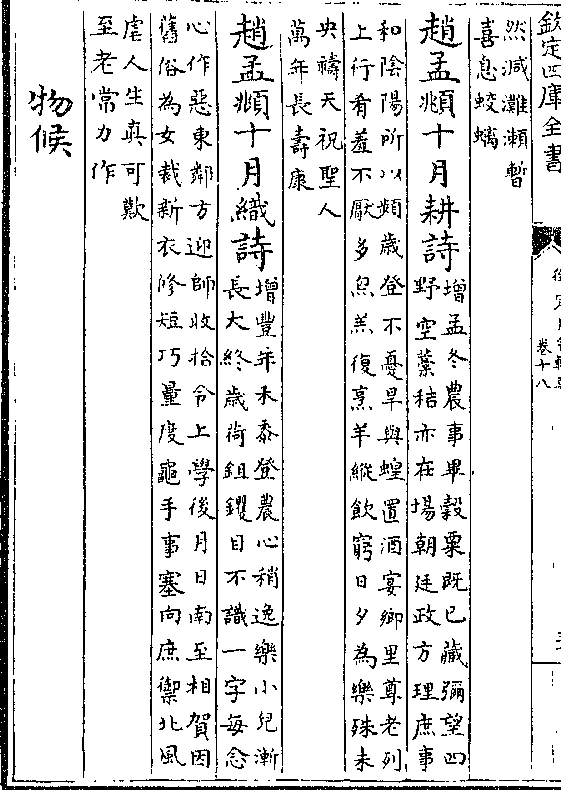 欽定四庫全書
卷十八
然減灘瀨暫
喜息蛟螭
趙孟頫十月耕詩
增孟冬農事畢穀粟既已藏彌望四
野空藁秸亦在場朝廷政方理庶事
和陰陽所以頻歲登不憂旱與蝗置酒宴鄉里尊老列
上行肴羞不厭多炰羔復烹羊縱飲窮日夕為樂殊未
央禱天祝聖人
萬年長壽康
趙孟頫十月織詩
增豐年禾黍登農心稍逸樂小兒漸
長大終歲荷鉏钁目不識一字每念
心作惡東鄰方迎師收拾令上學後月日南至相賀因
舊俗為女裁新衣修短巧量度龜手事塞向庶禦北風
虐人生真可歎
至老常力作
物候